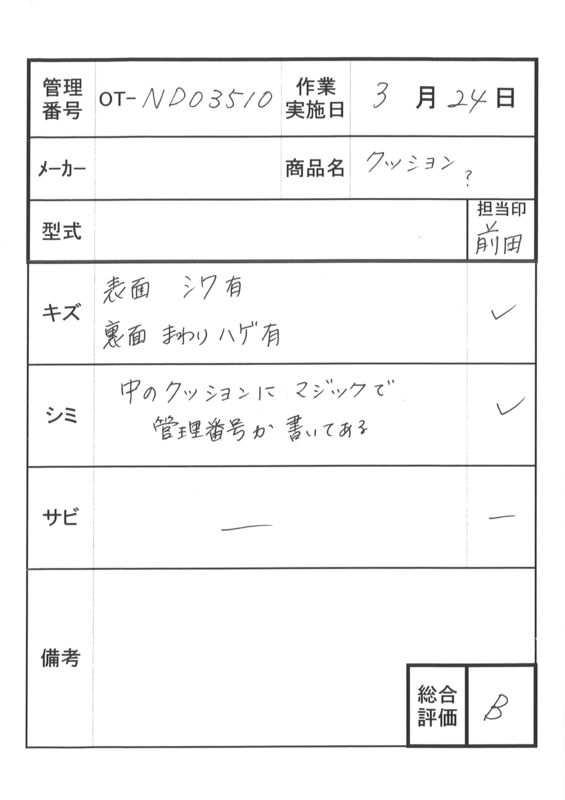 管理番号 OT-ND03510 作業実施日 3月24日
メーカー 商品名 クッション?
型式 担当印 前田
キズ 表面 シワ有 ✓
裏面 まわりハゲ有
シミ 中のクッションに マジックで ✓
管理番号が 書いてある
サビ — —
備考
総合評価 B